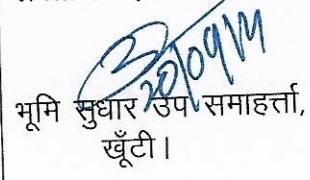 20/09/14
भूमि सुधार उप समाहर्त्ता,
खूँटी।